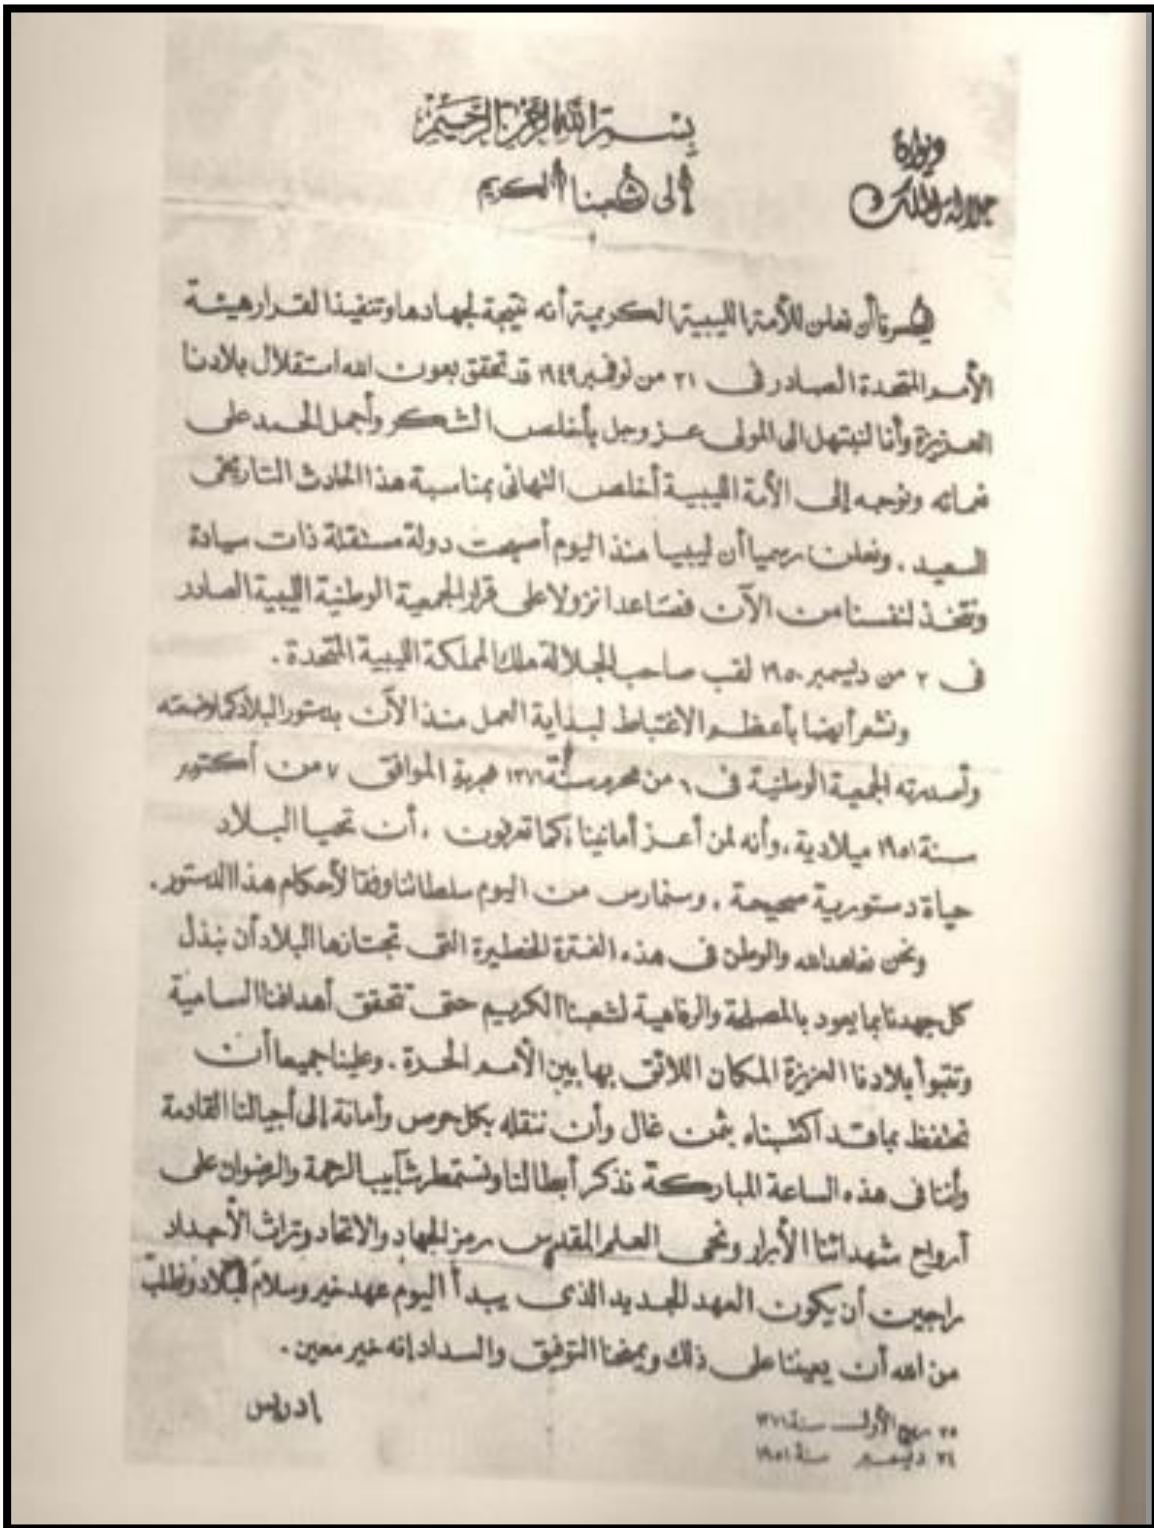 بسم الله الرحمن الرحيم
ديوان
جلالة الملك
ألى شعبنا الكريم
يسرنا أن نعلن للأمة الليبية الكريمة أنه نتيجة لجهادها وتنفيذا لقرار هيئة
الأمم المتحدة الصادر فى ٢١ من نوفمبر ١٩٤٩ قد تحقق بعون الله استقلال بلادنا
العزيزة وأنا لنبتهل الى المولى عز وجل بأخلص الشكر وأجمل الحمد على
نعمائه ونوجه إلى الأمة الليبية أخلص التهانى بمناسبة هذا الحادث التاريخى
السعيد . ونعلن رسميا أن ليبيا منذ اليوم أصبحت دولة مستقلة ذات سيادة
ونتخذ لنفسنا من الآن فصاعدا نزولا على قرار الجمعية الوطنية الليبية الصادر
فى ٢ من ديسمبر ١٩٥٠ لقب صاحب الجلالة ملك المملكة الليبية المتحدة .
ونشعر أيضا بأعظم الاغتباط لبداية العمل منذ الآن بدستور البلاد كما وضعته
وأصدرته الجمعية الوطنية فى ٦ من محرم سنة ١٣٧١ هجرية الموافق ٧ من أكتوبر
سنة ١٩٥١ ميلادية ، وأنه لمن أعز أمانينا ، كما تعرفون ، أن تحيا البلاد
حياة دستورية صحيحة . وسنمارس من اليوم سلطاتنا وفقا لأحكام هذا الدستور .
ونحن نعاهد الله والوطن فى هذه الفترة الخطيرة التى تجتازها البلاد أن نبذل
كل جهدنا بما يعود بالمصلحة والرفاهية لشعبنا الكريم حتى تتحقق أهدافنا السامية
وتتبوأ بلادنا العزيزة المكان اللائق بها بين الأمم الحرة . وعلينا جميعا أن
نحتفظ بما قد اكتسبناه بثمن غال وأن ننقله بكل حرص وأمانة إلى أجيالنا القادمة
وأننا فى هذه الساعة المباركة نذكر أبطالنا ونستمطر شآبيب الرحمة والرضوان على
أرواح شهدائنا الأبرار ونحى العلم المقدس رمز الجهاد والاتحاد وتراث الأجداد
راجين أن يكون العهد الجديد الذى يبدأ اليوم عهد خير وسلام للبلاد ونطلب
من الله أن يعيننا على ذلك ويمنحنا التوفيق والسداد إنه خير معين .
إدريس
٢٥ ربيع الأول سنة ١٣٧١
٢٤ ديسمبر سنة ١٩٥١